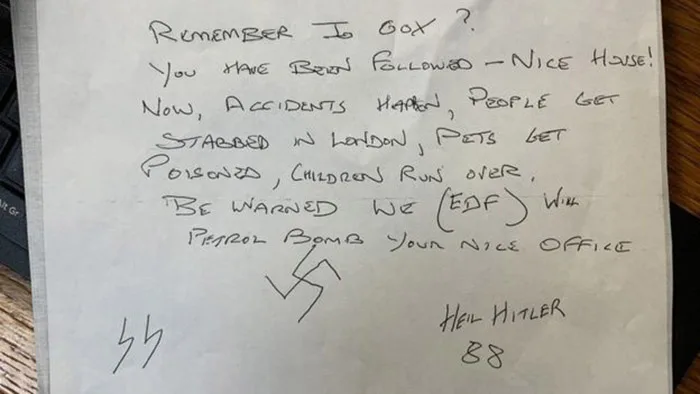 REMEMBER JO COX?
YOU HAVE BEEN FOLLOWED – NICE HOUSE!
NOW, ACCIDENTS HAPPEN, PEOPLE GET
STABBED IN LONDON, PETS GET
POISONED, CHILDREN RUN OVER.
BE WARNED WE (EDF) WILL
PETROL BOMB YOUR NICE OFFICE
HEIL HITLER
88
SS
Alt Gr